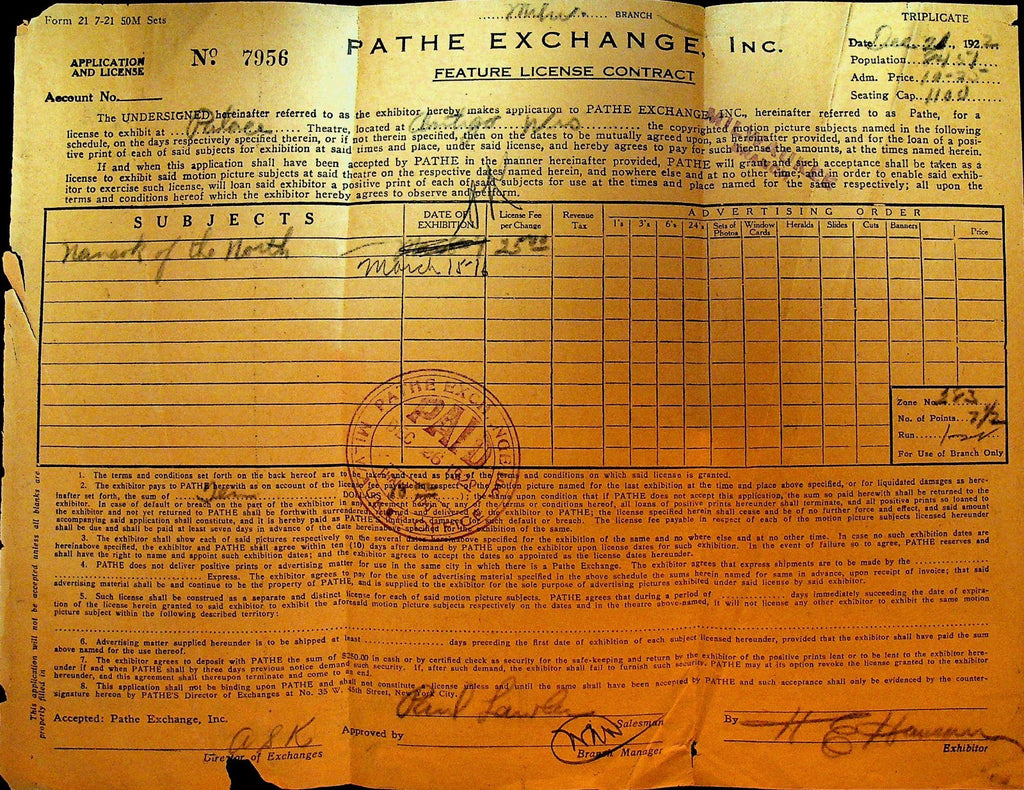 Form 21 7-21 50M Sets
BRANCH
TRIPLICATE
PATHE EXCHANGE, INC.
FEATURE LICENSE CONTRACT
APPLICATION
AND LICENSE
No. 7956
Account No.
Date 192
Population
Adm. Price 10-25
Seating Cap. 1100
The UNDERSIGNED hereinafter referred to as the exhibitor hereby makes application to PATHE EXCHANGE, INC., hereinafter referred to as Pathe, for a
license to exhibit at Palace Theatre, located at Antigo Wis the copyrighted motion picture subjects named in the following
schedule, on the days respectively specified therein, or if not therein specified, then on the dates to be mutually agreed upon, as hereinafter provided, and for the loan of a posi-
tive print of each of said subjects for exhibition at said times and place, under said license, and hereby agrees to pay for such license the amounts, at the times named herein.
If and when this application shall have been accepted by PATHE in the manner hereinafter provided, PATHE will grant by such acceptance shall be taken as a
license to exhibit said motion picture subjects at said theatre on the respective dates named herein, and nowhere else and at no other time; and in order to enable said exhib-
itor to exercise such license, will loan said exhibitor a positive print of each of said subjects for use at the times and place named for the same respectively; all upon the
terms and conditions hereof which the exhibitor hereby agrees to observe and perform.
SUBJECTS
DATE OF EXHIBITION
License Fee per Change
Revenue Tax
ADVERTISING ORDER
1's 3's 6's 24's Sets of Photos Window Cards Heralds Slides Cuts Banners Price
Nanook of the North 25.00
March 15-16
PATHE EXCHANGE
PAID
DEC 26
Zone No. 283
No. of Points 7 1/2
Run 1st
For Use of Branch Only
1. The terms and conditions set forth on the back hereof are to be taken and read as part of the terms and conditions on which said license is granted.
2. The exhibitor pays to PATHE herewith as on account of the license fee payable in respect of the motion picture named for the last exhibition at the time and place above specified, or for liquidated damages as here-
inafter set forth, the sum of DOLLARS ( ); the sum upon condition that if PATHE does not accept this application, the sum so paid herewith shall be returned to the
exhibitor. In case of default or breach on the part of the exhibitor in the payment herein or any of the terms or conditions hereof, all loans of positive prints hereunder shall terminate, and all positive prints so loaned to
the exhibitor and not yet returned to PATHE shall be forthwith surrendered and delivered by the exhibitor to PATHE; the license specified herein shall cease and be of no further force and effect, and said amount
accompanying said application shall constitute, and it is hereby paid as PATHE'S liquidated damages for such default or breach. The license fee payable in respect of each of the motion picture subjects licensed hereunder
shall be due and be paid at least seven days in advance of the date hereinbefore specified for the exhibition of the same.
3. The exhibitor shall show each of said pictures respectively on the several dates hereinabove specified for the exhibition of the same and no where else and at no other time. In case no such exhibition dates are
hereinabove specified, the exhibitor and PATHE shall agree within ten (10) days after demand by PATHE upon the exhibitor upon license dates for such exhibition. In the event of failure so to agree, PATHE reserves and
shall have the right to name and appoint such exhibition dates, and the exhibitor agrees to accept the dates so appointed as the license dates hereunder.
4. PATHE does not deliver positive prints or advertising matter for use in the same city in which there is a Pathe Exchange. The exhibitor agrees that express shipments are to be made by the
Express. The exhibitor agrees to pay for the use of advertising material specified in the above schedule the sums therein named for same in advance, upon receipt of invoice; that said
advertising material shall be and continue to be the property of PATHE, and is supplied to the exhibitor for the sole purpose of advertising pictures exhibited under said license by said exhibitor.
5. Such license shall be construed as a separate and distinct license for each of said motion picture subjects. PATHE agrees that during a period of days immediately succeeding the date of expira-
tion of the license herein granted to said exhibitor to exhibit the aforesaid motion picture subjects respectively on the dates and in the theatre above-named, it will not license any other exhibitor to exhibit the same motion
picture subject within the following described territory:
6. Advertising matter supplied hereunder is to be shipped at least days preceding the first date of exhibition of each subject licensed hereunder, provided that the exhibitor shall have paid the sum
above named for the use thereof.
7. The exhibitor agrees to deposit with PATHE the sum of $250.00 in cash or by certified check as security for the safe-keeping and return by the exhibitor of the positive prints lent or to be lent to the exhibitor here-
under if and when PATHE shall by three days previous notice demand such security. If, after such demand, the exhibitor shall fail to furnish such security, PATHE may at its option revoke the license granted to the exhibitor
hereunder, and this agreement shall thereupon terminate and come to an end.
8. This application shall not be binding upon PATHE and shall not constitute a license unless and until the same shall have been accepted by PATHE and such acceptance shall only be evidenced by the counter-
signature hereon by PATHE'S Director of Exchanges at No. 35 W. 45th Street, New York City.
This application will not be accepted unless all blanks are
properly filled in
Accepted: Pathe Exchange, Inc.
Salesman
By
Approved by
ASK
Director of Exchanges
Branch Manager
Exhibitor